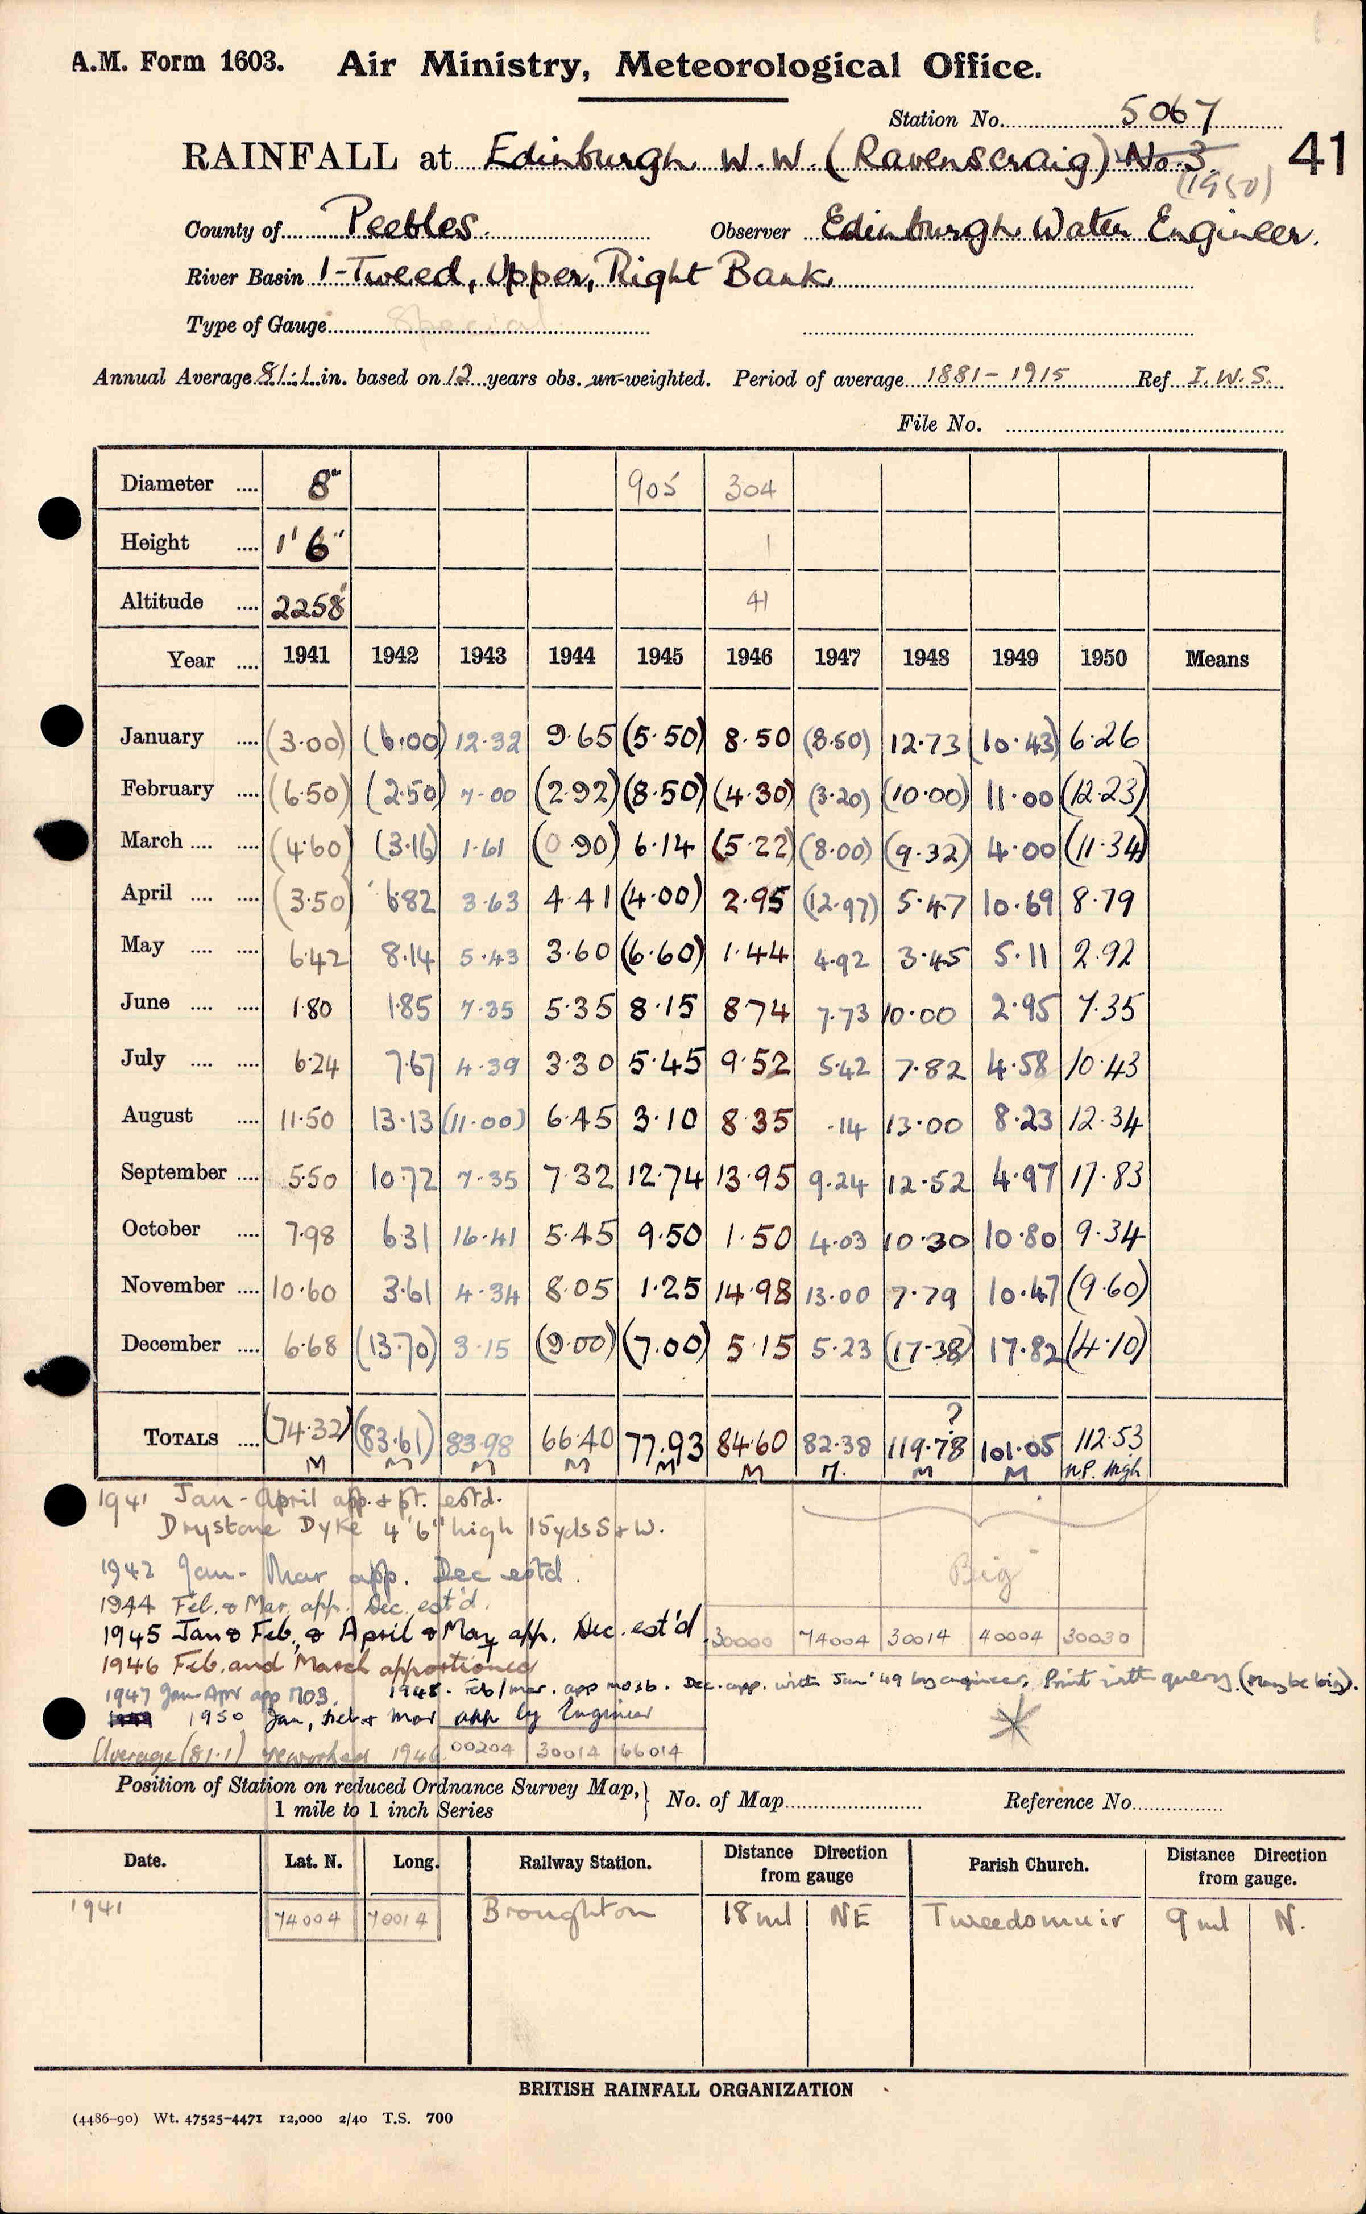 A.M. Form 1603. Air Ministry, Meteorological Office.
Station No. 5067
RAINFALL at Edinburgh W.W. (Ravenscraig) No. 3. 41
(1950)
County of Peebles. Observer Edinburgh Water Engineer.
River Basin 1-Tweed, Upper, Right Bank
Type of Gauge Special
Annual Average 81.1 in. based on 12 years obs. un-weighted. Period of average 1881-1915 Ref I.W.S.
File No.
Diameter .... 8" 905 304
Height .... 1' 6" 1
Altitude .... 2258' 41
Year .... 1941 1942 1943 1944 1945 1946 1947 1948 1949 1950 Means
January .... (3.00) (6.00) 12.32 9.65 (5.50) 8.50 (8.50) 12.73 (10.43) 6.26
February .... (6.50) (2.50) 7.00 (2.92) (8.50) (4.30) (3.20) (10.00) 11.00 (12.23)
March .... .... (4.60) (3.16) 1.61 (0.90) 6.14 (5.22) (8.00) (9.32) 4.00 (11.34)
April .... .... (3.50) 6.82 3.63 4.41 (4.00) 2.95 (12.97) 5.47 10.69 8.79
May .... .... 6.42 8.14 5.43 3.60 (6.60) 1.44 4.92 3.45 5.11 2.92
June .... .... 1.80 1.85 7.35 5.35 8.15 8.74 7.73 10.00 2.95 7.35
July .... .... 6.24 7.67 4.39 3.30 5.45 9.52 5.42 7.82 4.58 10.43
August .... 11.50 13.13 (11.00) 6.45 3.10 8.35 .14 13.00 8.23 12.34
September .... 5.50 10.72 7.35 7.32 12.74 13.95 9.24 12.52 4.97 17.83
October .... 7.98 6.31 16.41 5.45 9.50 1.50 4.03 10.30 10.80 9.34
November .... 10.60 3.61 4.34 8.05 1.25 14.98 13.00 7.79 10.47 (9.60)
December .... 6.68 (13.70) 3.15 (9.00) (7.00) 5.15 5.23 (17.38) 17.82 (4.10)
?
TOTALS .... (74.32) (83.61) 83.98 66.40 77.93 84.60 82.38 119.78 101.05 112.53
M M M M M M M. M M n.p. high
1941 Jan-April app. & pt. estd.
Drystone Dyke 4'6" high 15yds S & W.
1942 Jan- Mar app. Dec estd. Big
1944 Feb. & Mar. app. Dec. est'd.
1945 Jan & Feb., & April & May app. Dec. est'd 30000 74004 30014 40004 30030
1946 Feb. and March apportioned
1947 Jan-Apr app NO3. 1948. Feb/mar. app no3b. Dec. app. with Jan '49 by engineer. Print with query. (Maybe big).
1950 Jan, Feb & Mar app by Engineer
Average (81.1) reworked 1946 00204 30014 66014
Position of Station on reduced Ordnance Survey Map, 1 mile to 1 inch Series } No. of Map Reference No.
Date. Lat. N. Long. Railway Station. Distance Direction from gauge Parish Church. Distance Direction from gauge.
1941 74004 70014 Broughton 18ml NE Tweedsmuir 9ml N.
BRITISH RAINFALL ORGANIZATION
(4486-90) Wt. 47525-4471 12,000 2/40 T.S. 700